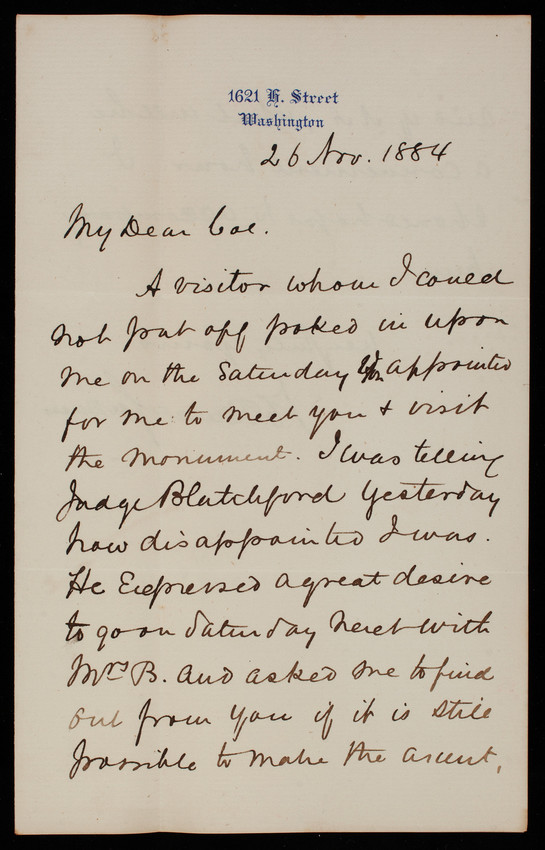 1621 H. Street
Washington
26 Nov. 1884
My Dear Col.
A visitor whom I could
not put off poked in upon
me on the Saturday you appointed
for me to meet you & visit
the monument. I was telling
Judge Blatchford Yesterday
how disappointed I was.
He Expressed a great desire
to go on Saturday next with
Mrs B. and asked me to find
out from you if it is still
possible to make the ascent,